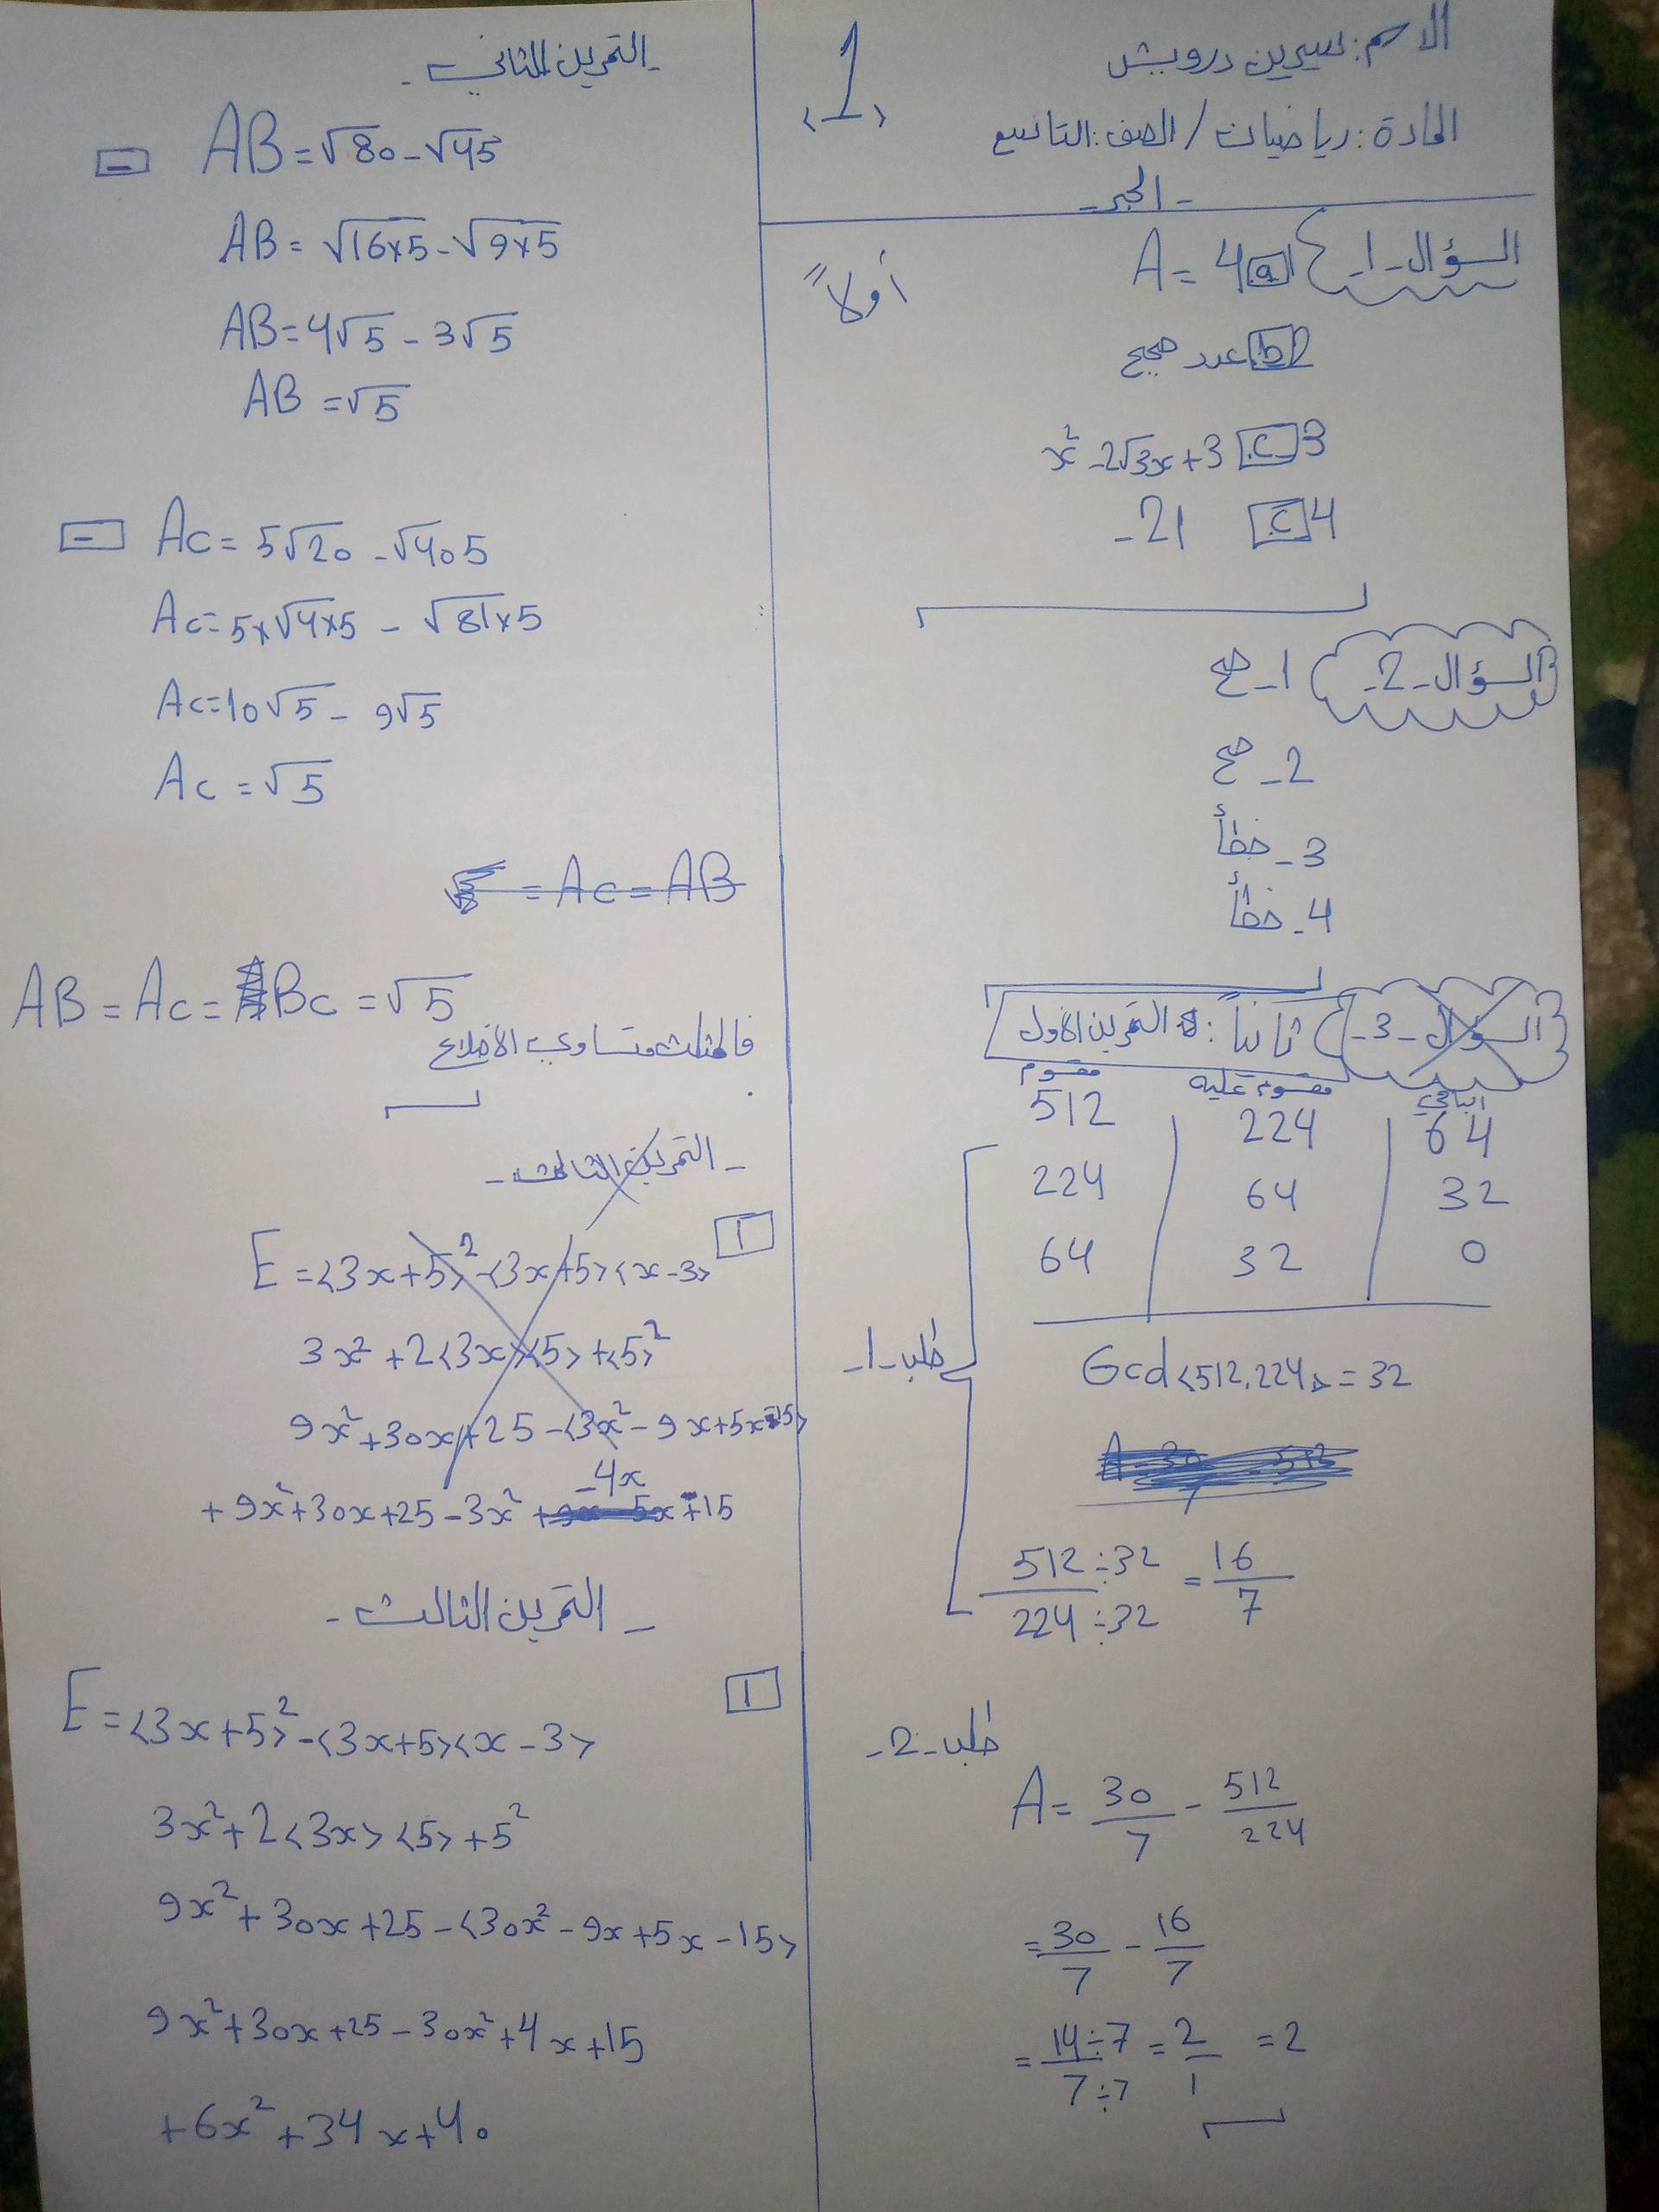 الاسم: سيرين درويش
المادة: رياضيات / الصف: التاسع
<1>
-الجبر-
السؤال -1-
أولاً
1 a A = 4
2 b عدد صحيح
3 c x² - 2√3x + 3
4 c -21
السؤال -2-
1- صح
2- صح
3- خطأ
4- خطأ
السؤال -3-
ثانياً: التمرين الأول
مقسوم مقسوم عليه الباقي
512 224 64
224 64 32
64 32 0
طلب -1-
Gcd<512,224> = 32
512÷32 / 224÷32 = 16/7
طلب -2-
A = 30/7 - 512/224
= 30/7 - 16/7
= 14÷7 / 7÷7 = 2/1 = 2
-التمرين الثاني-
- AB = √80 - √45
AB = √16×5 - √9×5
AB = 4√5 - 3√5
AB = √5
- Ac = 5√20 - √405
Ac = 5×√4×5 - √81×5
Ac = 10√5 - 9√5
Ac = √5
= Ac = AB
AB = Ac = Bc = √5
فالمثلث متساوي الأضلاع
-التمرين الثالث-
1
E = <3x+5>² - <3x+5><x-3>
3x² + 2<3x><5> + <5>²
9x² + 30x + 25 - <3x² - 9x + 5x - 15>
-4x
+ 9x² + 30x + 25 - 3x² + 15
-التمرين الثالث-
1
E = <3x+5>² - <3x+5><x-3>
3x² + 2<3x><5> + 5²
9x² + 30x + 25 - <30x² - 9x + 5x - 15>
9x² + 30x + 25 - 30x² + 4x + 15
+6x² + 34x + 40